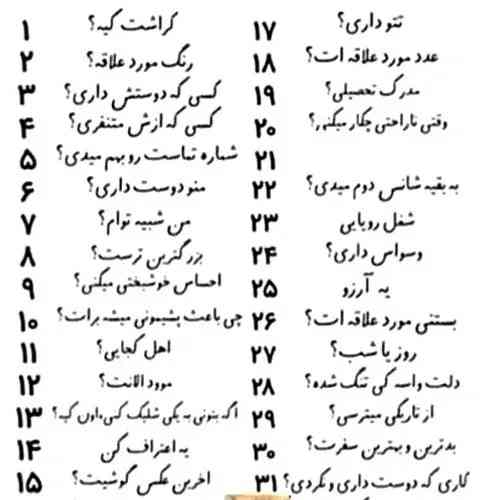 ۱ کراشت کیه؟
۲ رنگ مورد علاقه؟
۳ کسی که دوستش داری؟
۴ کسی که ازش متنفری؟
۵ شماره تماست رو بهم میدی؟
۶ منو دوست داری؟
۷ من شبیه توام؟
۸ بزرگترین ترست؟
۹ احساس خوشبختی میکنی؟
۱۰ چی باعث پشیمونی میشه برات؟
۱۱ اهل کجایی؟
۱۲ موود الانت؟
۱۳ اگه بتونی به یکی شلیک کنی، اون کیه؟
۱۴ یه اعتراف کن
۱۵ اخرین عکس گوشیت؟
۱۷ تتو داری؟
۱۸ عدد مورد علاقه ات؟
۱۹ مدرک تحصیلی؟
۲۰ وقتی ناراحتی چکار میکنی؟
۲۱
۲۲ به بقیه شانس دوم میدی؟
۲۳ شغل رویایی
۲۴ وسواس داری؟
۲۵ یه آرزو
۲۶ بستنی مورد علاقه ات؟
۲۷ روز یا شب؟
۲۸ دلت واسه کی تنگ شده؟
۲۹ از تاریکی میترسی؟
۳۰ بدترین و بهترین سفرت؟
۳۱ کاری که دوست داری و نکردی؟